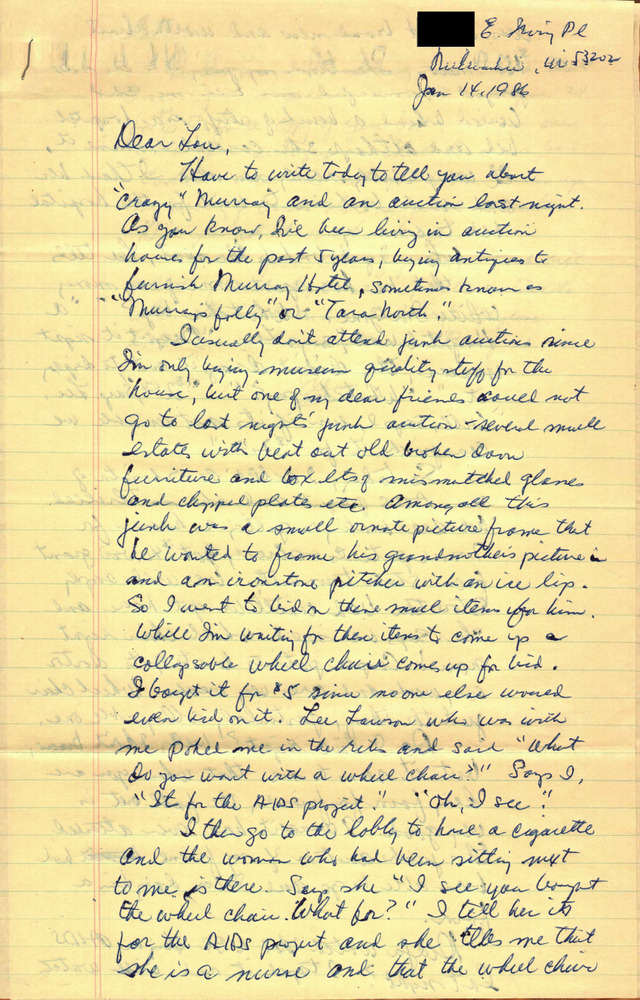 E. Irving Pl
Milwaukee, WI 53202
Jan 14, 1986
Dear Lou,
Have to write today to tell you about
"crazy" Murray and an auction last night.
As you know, I've been living in auction
houses for the past 5 years, buying antiques to
furnish Murray Hotel, sometimes known as
"Murray's folly" or "Tara North."
I usually don't attend junk auctions since
I'm only buying museum quality stuff for the
house, but one of my dear friends could not
go to last nights' junk auction - several small
estates with beat out old broken down
furniture and box lots of mismatched glasses
and chipped plates etc. Among all this
junk was a small ornate picture frame that
he wanted to frame his grandmother's picture in
and an ironstone pitcher with an ice lip.
So I went to bid on these small items for him.
While I'm waiting for these items to come up a
collapsable wheel chair comes up for bid.
I bought it for $5 since no one else would
even bid on it. Lee Lawson who was with
me poked me in the ribs and said "What
do you want with a wheel chair?" Says I,
"It for the AIDS project." "Oh, I see".
I then go to the lobby to have a cigarette
and the woman who had been sitting next
to me is there. Says she "I see you bought
the wheel chair. What for?" I tell her its
for the AIDs project and she tells me that
she is a nurse and that the wheel chair